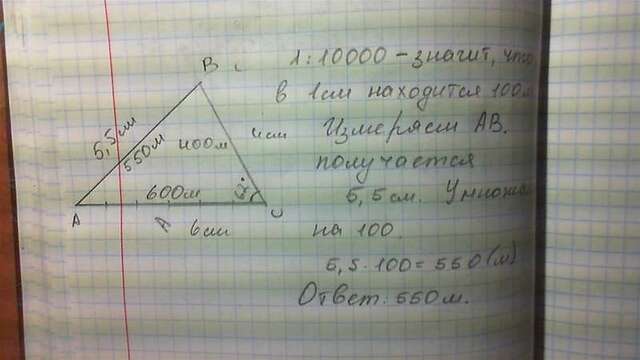 B
5,5см
550м
400м
4см
600м
A
A
C
6см
1:10000 - значит, что
в 1см находится 100м
Измеряем АВ.
получается
5,5см. Умножа
на 100.
5,5 · 100 = 550 (м)
Ответ: 550м.